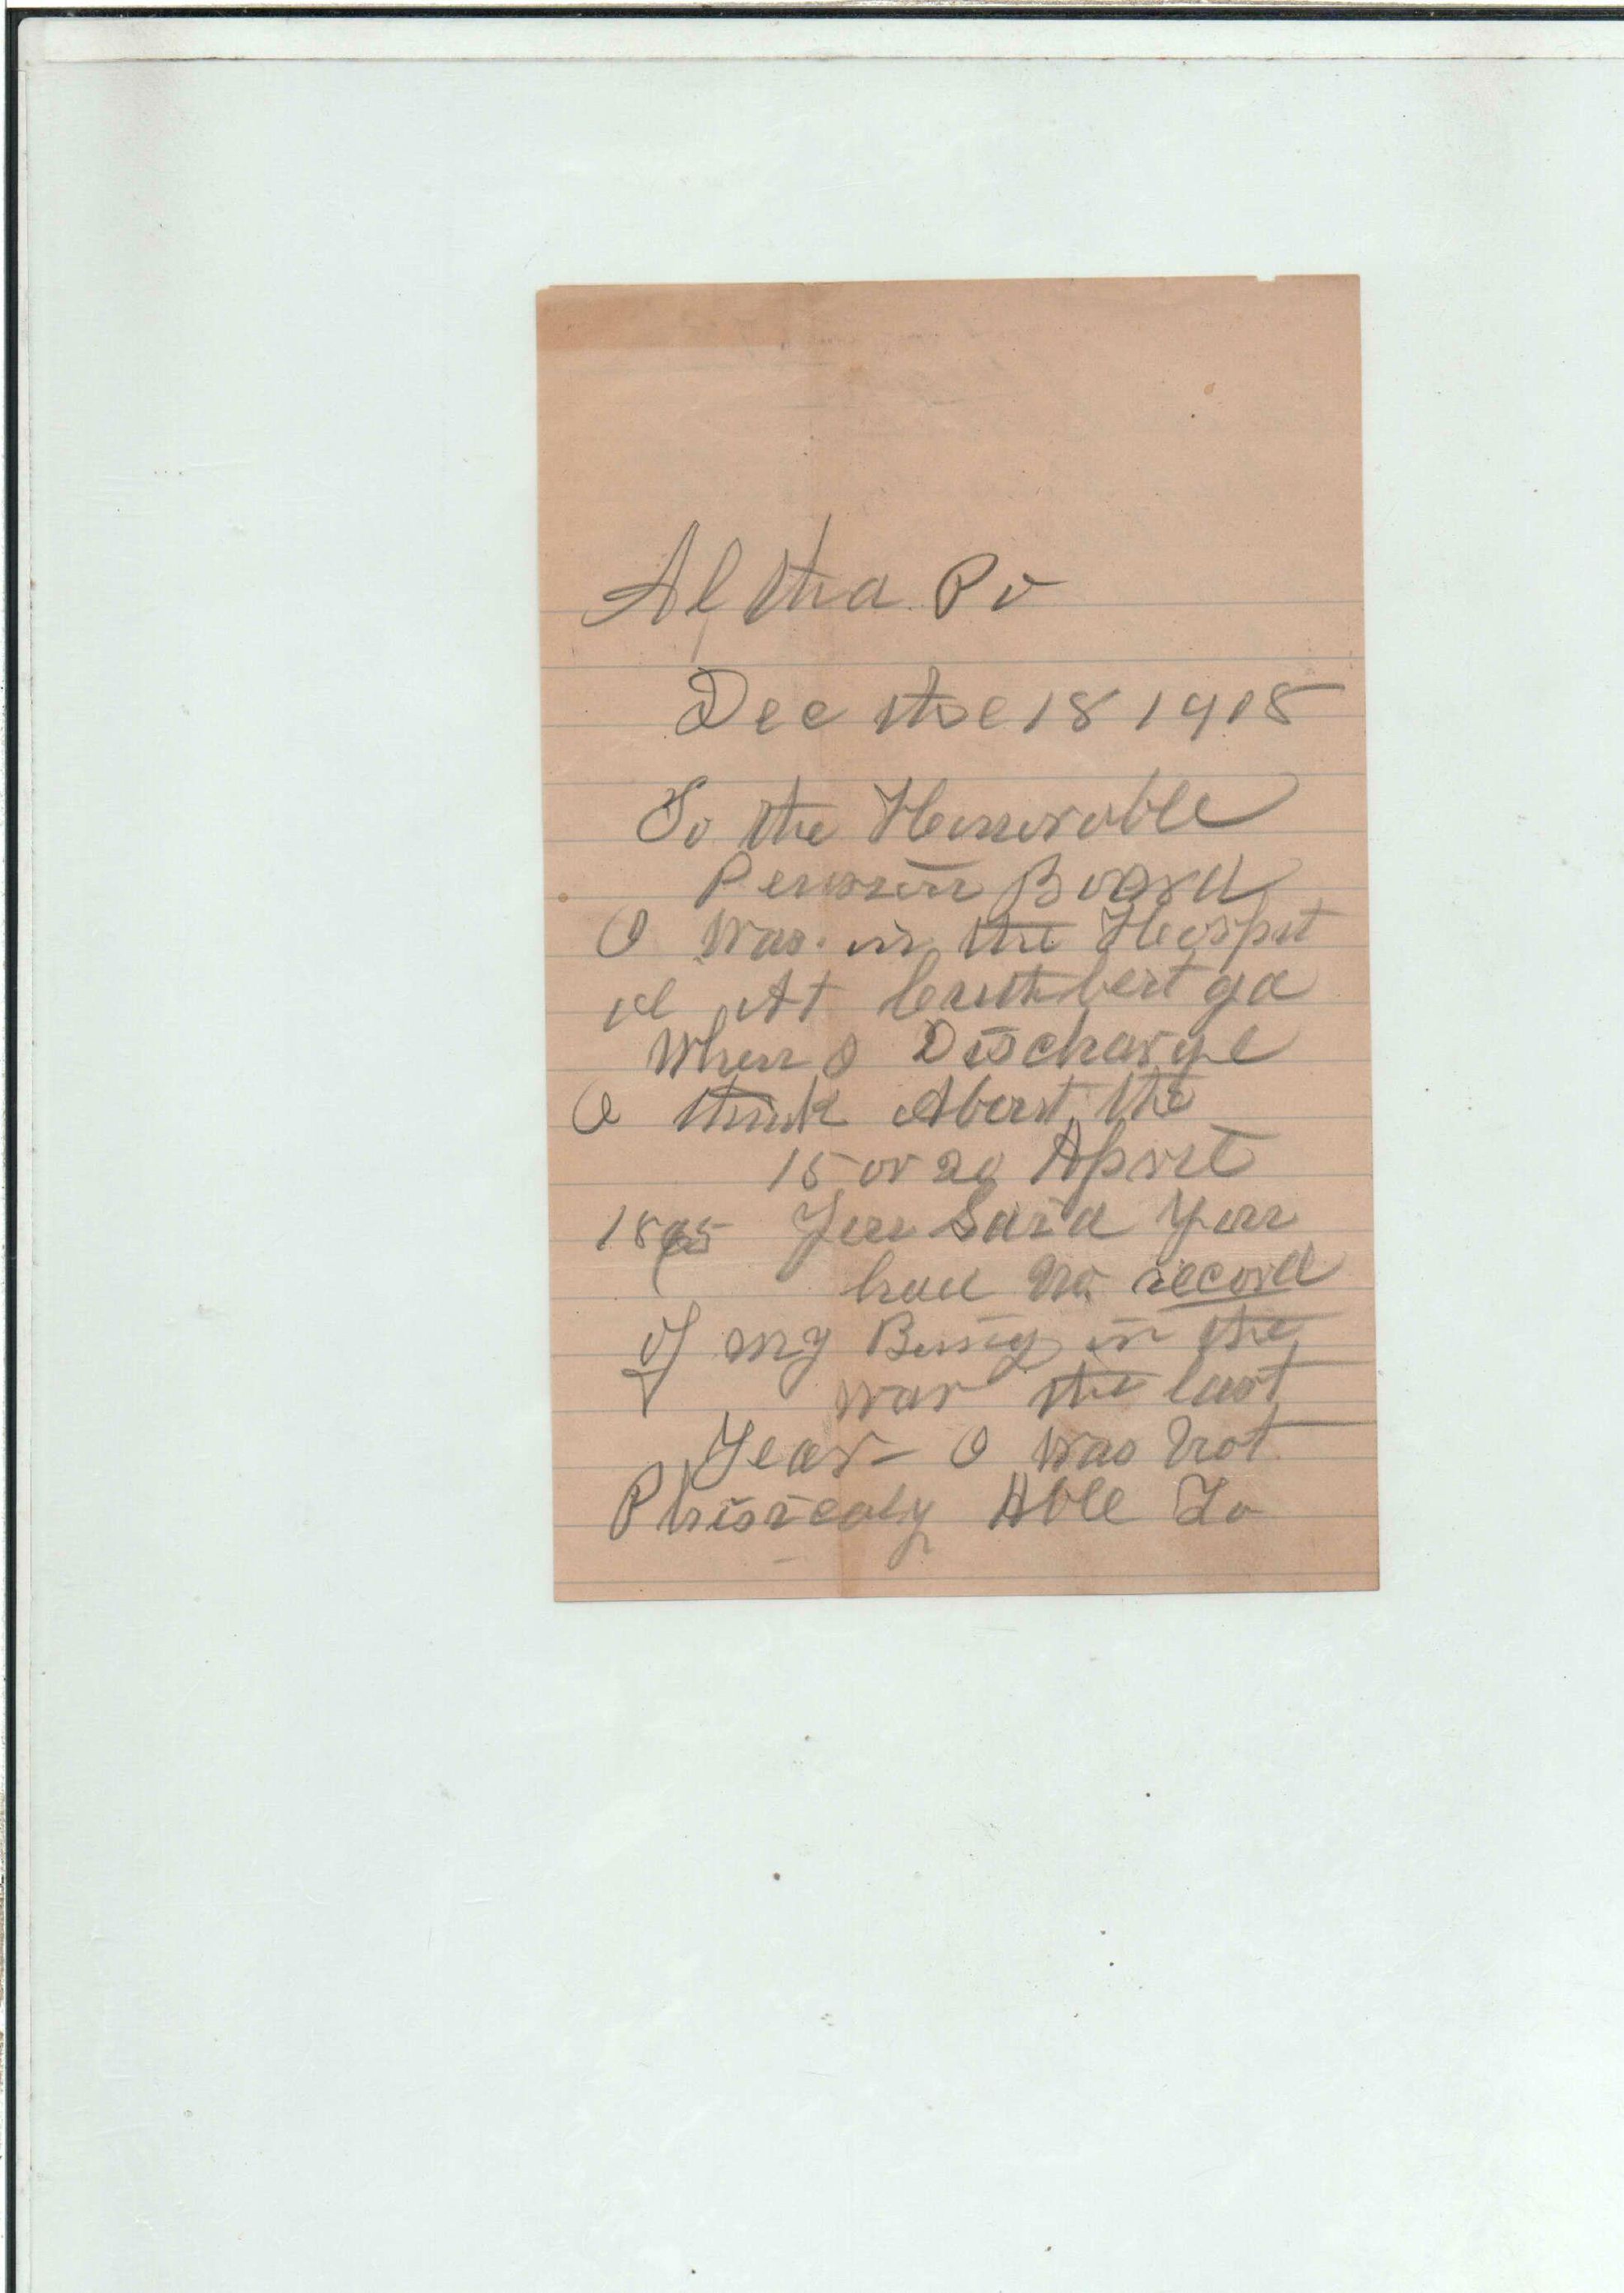 Altha Po
Dec the 18 1915
To the Honorable
Pension Board
I was in the Hospit
el At Cuthbert ga
When I Discharge
I think About the
15 or 20 April
1865 You Said You
had No record
of my Being in the
war the last
Year - I was Not
Phisicaly Able To